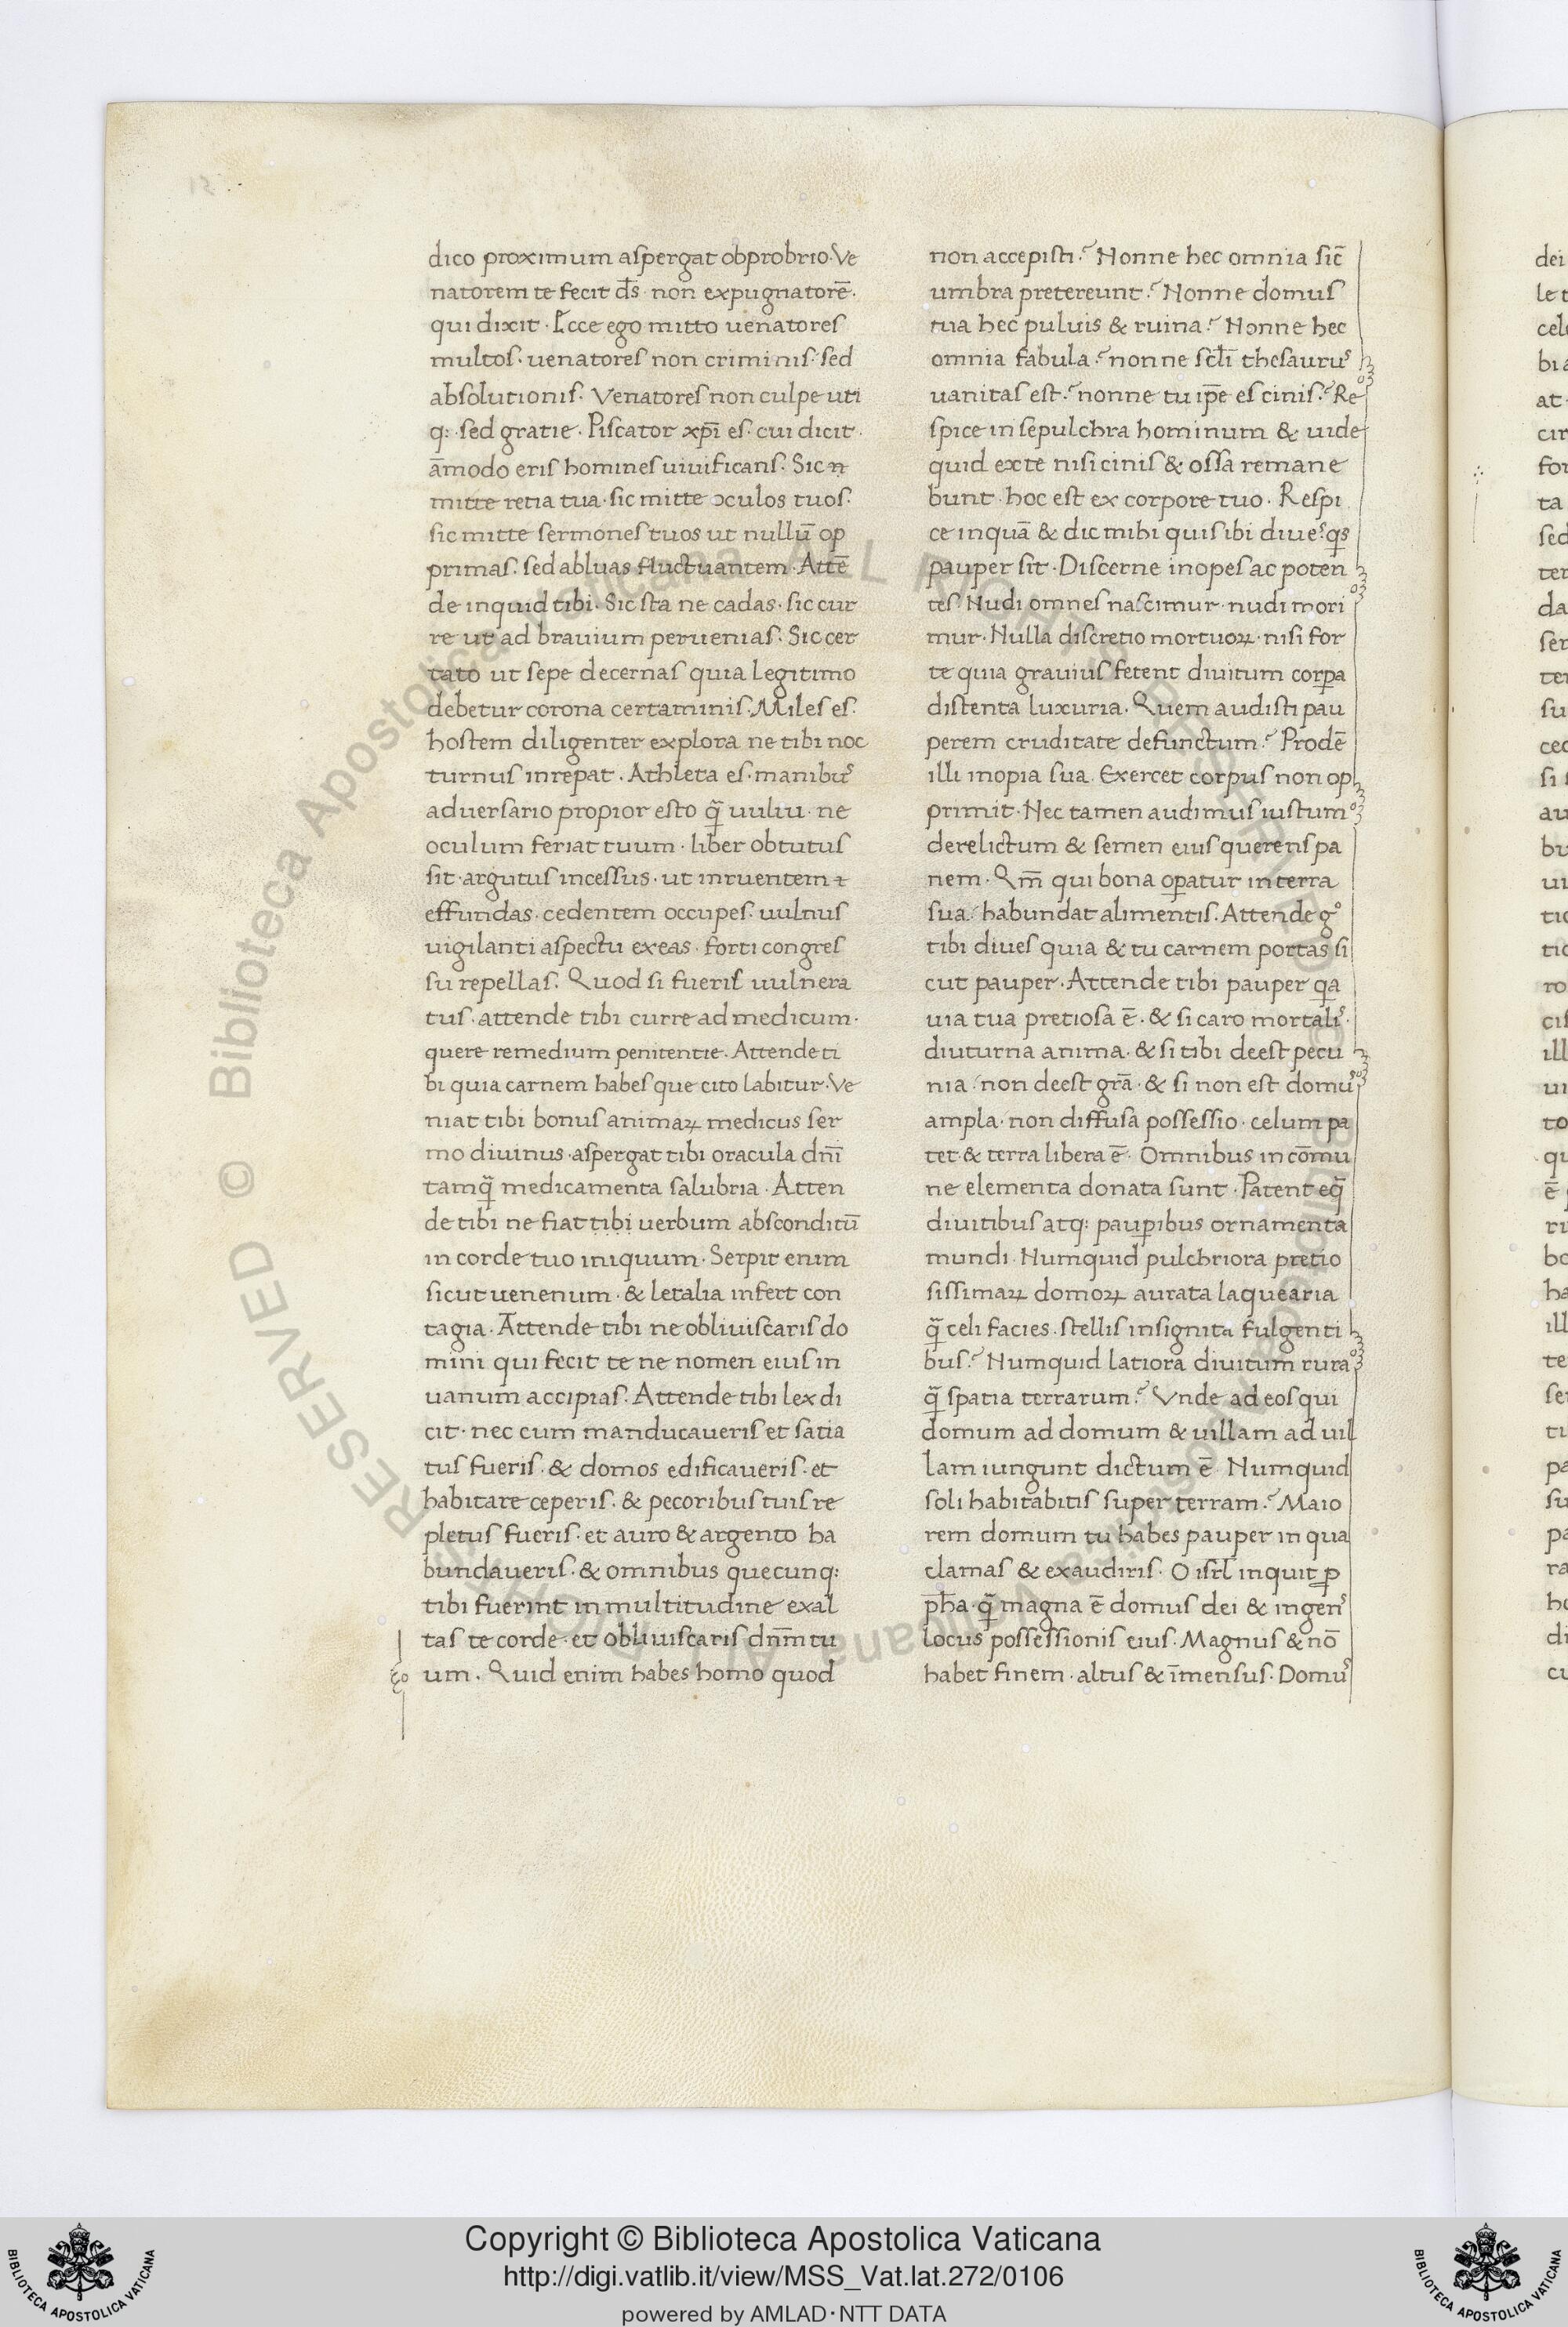 dico proximum aspergat obprobrio. Ve
natorem te fecit d̄s non expugnatorē.
qui dixit. Ecce ego mitto uenatores
multos. uenatores non criminis. sed
absolutionis. Venatores non culpe uti
q: sed gratie. Piscator xp̄i es. cui dicit.
āmodo eris homines uiuificans. Sic
mitte retia tua. sic mitte oculos tuos.
sic mitte sermones tuos ut nullū op
primas. sed abluas fluctuantem. Attē
de inquid tibi. Sic sta ne cadas. sic cur
re ut ad brauium peruenias. Sic cer
tato ut sepe decernas quia legitimo
debetur corona certaminis. Miles es.
hostem diligenter explora ne tibi noc
turnus inrepat. Athleta es. manibuˢ
aduersario propior esto q̄ uultu. ne
oculum feriat tuum. liber obtutus
sit. argutus incessus. ut inruentem
effundas. cedentem occupes. uulnus
uigilanti aspectu exeas. forti congres
su repellas. Quod si fueris uulnera
tus. attende tibi curre ad medicum.
quere remedium penitentie. Attende ti
bi quia carnem habes que cito labitur. Ve
niat tibi bonus animaꝝ medicus ser
mo diuinus. aspergat tibi oracula dn̄i
tamq̄ medicamenta salubria. Atten
de tibi ne fiat tibi uerbum absconditū
in corde tuo iniquum. Serpit enim
sicut uenenum. & letalia infert con
tagia. Attende tibi ne obliuiscaris do
mini qui fecit te ne nomen eius in
uanum accipias. Attende tibi lex di
cit. nec cum manducaueris et satia
tus fueris. & domos edificaueris. et
habitare ceperis. & pecoribus tuis re
pletus fueris. et auro & argento ha
bundaueris. & omnibus quecunq:
tibi fuerint in multitudine exal
tas te corde. et obliuiscaris dn̄m tu
um. Quid enim habes homo quod
non accepisti? Nonne hec omnia sic̄
umbra pretereunt? Nonne domus
tua hec puluis & ruina? Nonne hec
omnia fabula? nonne sc̄li thesauruˢ
uanitas est? nonne tu ip̄e es cinis? Re
spice in sepulchra hominum & uide
quid ex te nisi cinis & ossa remane
bunt. hoc est ex corpore tuo. Respi
ce inquā & dic mihi quis ibi diueˢ. qˢ
pauper sit. Discerne inopes ac poten
tes. Nudi omnes nascimur. nudi mori
mur. Nulla discretio mortuoꝝ. nisi for
te quia grauius fetent diuitum corꝑa
distenta luxuria. Quem audisti pau
perem cruditate defunctum? Prodē
illi inopia sua. Exercet corpus non op
primit. Nec tamen audimus iustum
derelictum & semen eius querens pa
nem. Qm̄ qui bona oꝑatur in terra
sua. habundat alimentis. Attende gº
tibi diues quia & tu carnem portas si
cut pauper. Attende tibi pauper qa
uia tua pretiosa ē. & si caro mortaliˢ.
diuturna anima. & si tibi deest pecu
nia. non deest gr̄a. & si non est domuˢ
ampla. non diffusa possessio. celum pa
tet & terra libera ē. Omnibus in cōmu
ne elementa donata sunt. Patent eq̄
diuitibus atq: pauꝑibus ornamenta
mundi. Numquid pulchriora pretio
sissimaꝝ domoꝝ aurata laquearia
q̄ celi facies. stellis insignita fulgenti
bus? Numquid latiora diuitum rura
q̄ spatia terrarum? Vnde ad eos qui
domum ad domum & uillam ad uil
lam iungunt dictum ē. Numquid
soli habitabitis super terram? Maio
rem domum tu habes pauper in qua
clamas & exaudiris. O isrl̄ inquit ꝓ
ph̄a. q̄ magna ē domus dei & ingenˢ
locus possessionis eius. Magnus & nō
habet finem. altus & īmensus. Domuˢ
Copyright © Biblioteca Apostolica Vaticana
http://digi.vatlib.it/view/MSS_Vat.lat.272/0106
powered by AMLAD·NTT DATA